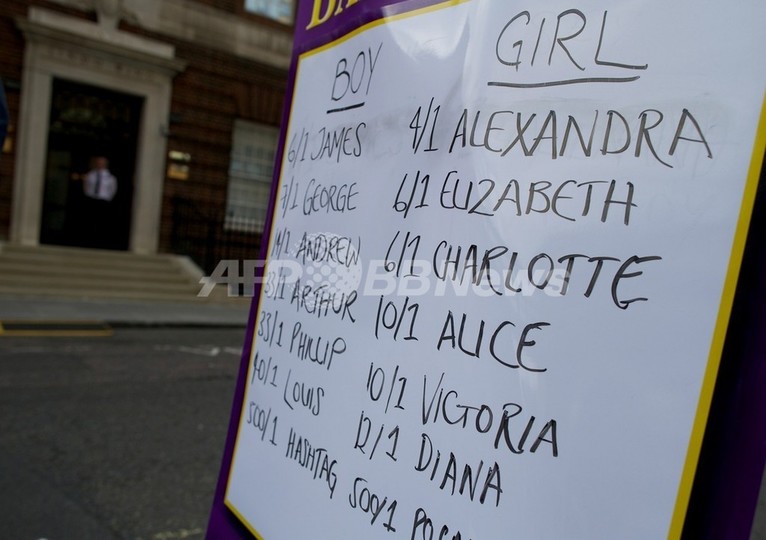 BOY
6/1 JAMES
7/1 GEORGE
14/1 ANDREW
33/1 ARTHUR
33/1 PHILLIP
40/1 LOUIS
500/1 HASHTAG
GIRL
4/1 ALEXANDRA
6/1 ELIZABETH
6/1 CHARLOTTE
10/1 ALICE
10/1 VICTORIA
12/1 DIANA
500/1
AFP BBNews